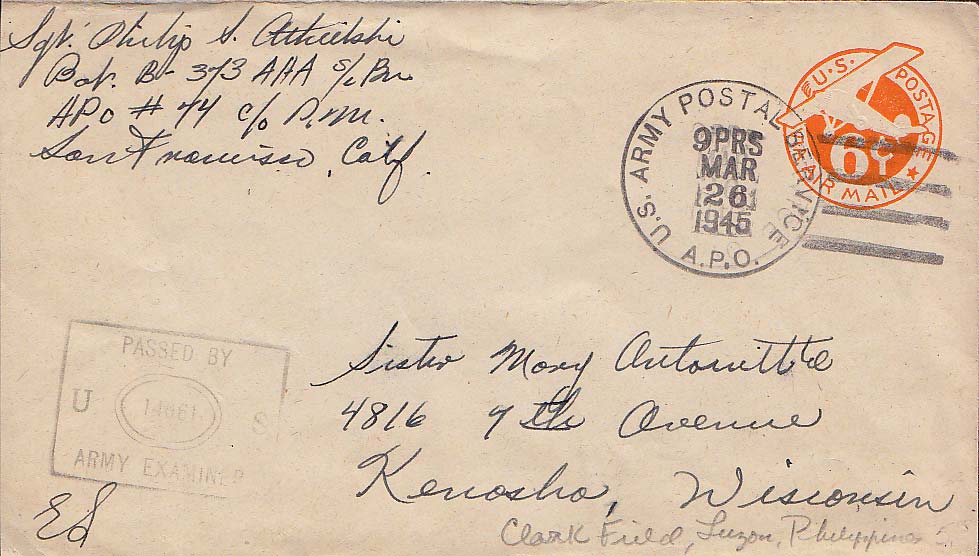 Sgt. Philip S.
Bat. B- 373 AAA S/L Bn.
APO # 74 c/o P.M.
San Francisco, Calif.
U.S. POSTAGE
6¢
AIR MAIL
U.S. ARMY POSTAL SERVICE
A.P.O.
9PRS
MAR
26
1945
PASSED BY
U S
ARMY EXAMINER
Sister Mary Antoinette
4816 7th Avenue
Kenosha, Wisconsin
Clark Field, Luzon, Philippines